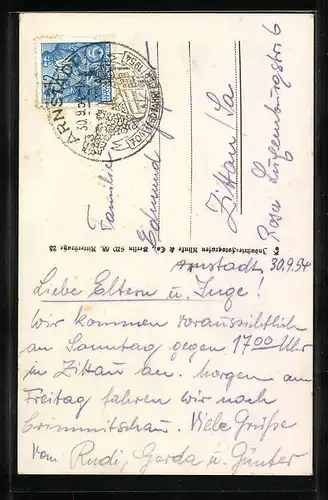 ARNSTADT
30.9.54
Familie
Edmund
Zittau/Sa
Rosa Luxemburgstr 6
Industrie-Fotografen Klinke & Co. Berlin SW 68, Ritterstraße 23
Arnstadt, 30.9.54
Liebe Eltern u. Inge!
Wir kommen voraussichtlich
an Sonntag gegen 17 00 Uhr
in Zittau an. Morgen am
Freitag fahren wir nach
Crimmitschau. Viele Grüße
Von Rudi, Gerda u. Günter